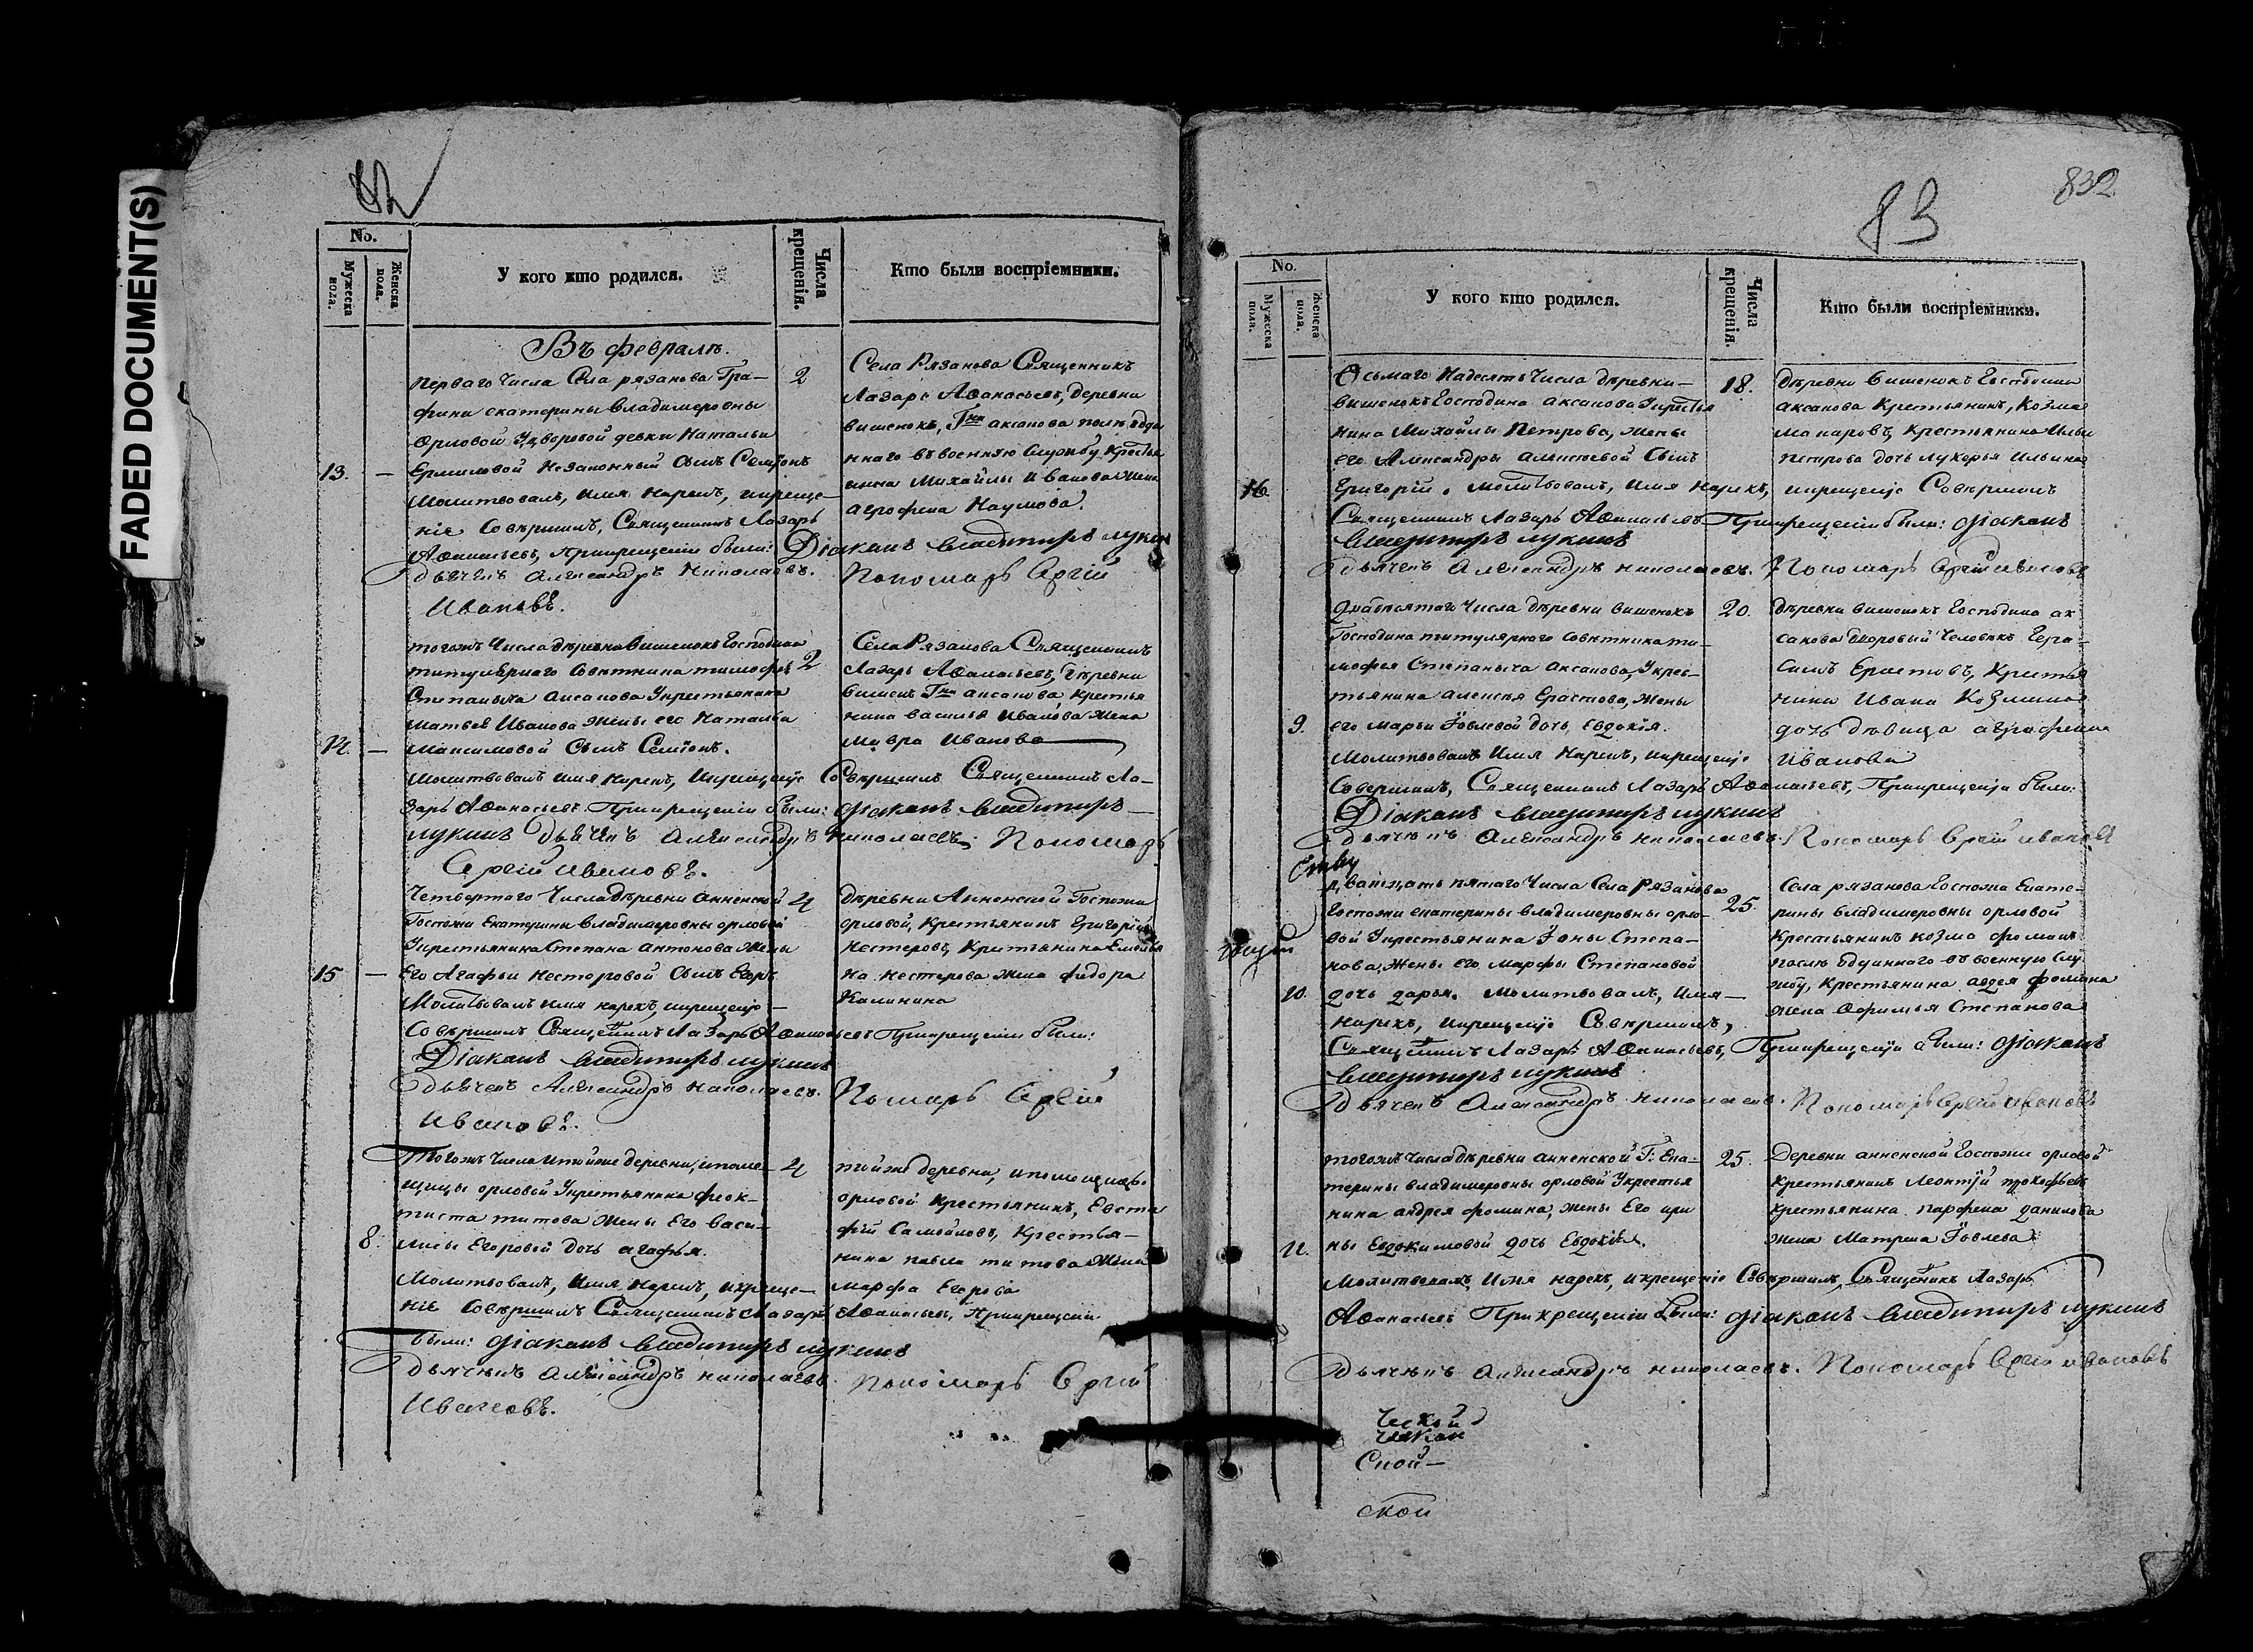 FADED DOCUMENT(S)
82
No.
Мужеска пола.
Женска пола.
У кого кто родился.
Числа крещенія.
Кто были воспріемники.
Въ февралѣ.
перваго Числа Села рязанова Гра—
фини екатерины владимеровны
Орловой у дворовой девки Натальи
13. — Ермиловой Незаконный Сынъ Семіонъ
Молитвовалъ, имя Нарекъ, икреще—
ніе Совѣршилъ, Священникъ Лазарь
Аѳанасьевъ, Прикрещеніи были: Діаканъ Владимиръ лукин
дьячекъ Александръ Николаевъ. Пономарь Сргій
Ивановъ.
2
Села Рязанова Священникъ
Лазарь Аѳанасьевъ, деревни
вишенокъ, Гна аксакова
ннаго въвоенную Службу Крестья
нина Михайлы Иванова Жена
агрофена Наумова.
тогожъ Числа дѣревни Вишенокъ Господина
титулярнаго Совѣтника тимофѣя 2
Степаныча аксакова Укрестьянина
матвея Иванова жены его Натальи
14. — Максимовой Сынъ Семіонъ.
Молитвовалъ имя Нарекъ, Икрещеніе Совѣршилъ Священникъ Ла—
зарь Аѳанасьевъ Прикрещеніи были: діаканъ владимиръ
лукинъ дьячекъ Александръ николаевъ Пономарь
Сргій ивановъ.
Села Рязанова Священникъ
Лазарь Аѳанасьевъ, дѣревни
вишенъ Гна аксакова крестья
нина василья иванова жена
мавра Иванова
Четвертого Числа дѣревни анненской 4
Госпожи Екатерины владимеровны орловой
Укрестьянина Степана антонова жены
15 — Его Агафьи Несторовой Сынъ Егоръ
Молитвовалъ имя нарекъ, икрещеніе
Совѣршилъ Священникъ Лазарь Аѳанасьевъ Прикрещеніи были:
Діаканъ владимиръ лукинъ
дьячекъ Александръ николаевъ. Помарь Сргій
ивановъ.
дѣревни Анненской Госпожи
орловой, Крестьянинъ Григорій
Нестеровъ, Крестьянина
на нестерова жена федора
Калинина
Тогожъ Числа итойже деревни, ипоме— 4
щицы орловой Укрестьянина феок—
тиста титова жены Его васи—
8. лисы Егоровой дочь агафья.
Молитвовалъ, имя Нарекъ, икреще—
ніе Совѣршилъ Священникъ Лазарь Аѳанасьевъ, Прикрещеніи
были: діаканъ владимиръ лукинъ
дьячекъ Александръ николаевъ Пономарь Сргій
Ивановъ.
тойже деревни, ипомещицы
орловой крестьянинъ, Евста
фій Самойловъ, Крестья—
нина павла титова жена
марфа Егорова
832
83
No.
Мужеска пола.
Женска пола.
У кого кто родился.
Числа крещенія.
Кто были воспріемники.
Осьмаго Надесять Числа дѣревни— 18.
вишенокъ Господина аксакова Укрестья
нина Михайлы Петрова, жены
его Александры алексѣевой Сынъ
16. Григорій. молитвовалъ, имя нарекъ, икрещеніе Совѣршилъ
Священникъ Лазарь Аѳанасьевъ Прикрещеніи были: діаканъ
владимиръ лукинъ
дьячекъ Александръ николаевъ. Пономарь Сргій ивановъ
дѣревни вишенокъ Господина
аксакова Крестьянинъ, Козма
макаровъ, Крестьянина Ильи
петрова дочь лукерья ильина
дватцатаго Числа дѣревни вишенокъ 20.
Господина титулярнаго Совѣтника ти—
мофея Степаныча аксакова, Укрес—
тьянина алексѣя Ерастова, жены
9. его марьи Іовлевой дочь, Евдокія.
Молитвовалъ Имя Нарекъ, икрещеніе
Совершилъ, Священникъ Лазарь Аѳанасьевъ, Прикрещеніи были:
Діаканъ владимиръ лукинъ
дьячекъ Александръ николаевъ. Пономарь Сргій ивановъ
дѣревни вишенокъ Господина ак
сакова дворовый Человѣкъ Гера—
симъ Ерастовъ, Крестья
нина Ивана Козмина
дочь дѣвица аграфена
Иванова
дватцать пятаго Числа Села Рязанова
Госпожи екатерины владимеровны орло— 25.
вой Укрестьянина Іоны Степа—
нова, жены его марфы Степановой
10. дочь дарья. Молитвовалъ, Имя—
нарекъ, икрещеніе Совѣршилъ,
Священникъ Лазарь Аѳанасьевъ, Прикрещеніи были: діаканъ
владимиръ лукинъ
дьячекъ Александръ николаевъ. Пономарь Сргій ивановъ
Села рязанова Госпожи Екате—
рины владимеровны орловой
крестьянинъ козма фоминъ
послѣ отданнаго въ военную слу
жбу, Крестьянина авдея фомина
жена Афимья Степанова
тогожъ Числа дѣревни анненской Г: Ека— 25.
терины владимеровны орловой Укрестья
нина андрея фомина, жены Его ири
11. ны Евдокимовой дочь Евдокія.
Молитвовалъ Имя нарекъ, икрещеніе Совѣршилъ, Священикъ Лазарь
Аѳанасьевъ Прикрещеніи были: діаканъ владимиръ лукинъ
дьячекъ Александръ николаевъ. Пономарь Сргій ивановъ
Деревни анненской Госпожи орловой
крестьянинъ леонтій прокофьевъ
крестьянина парфена данилова
жена Матрена Іовлева
Сной—
ской